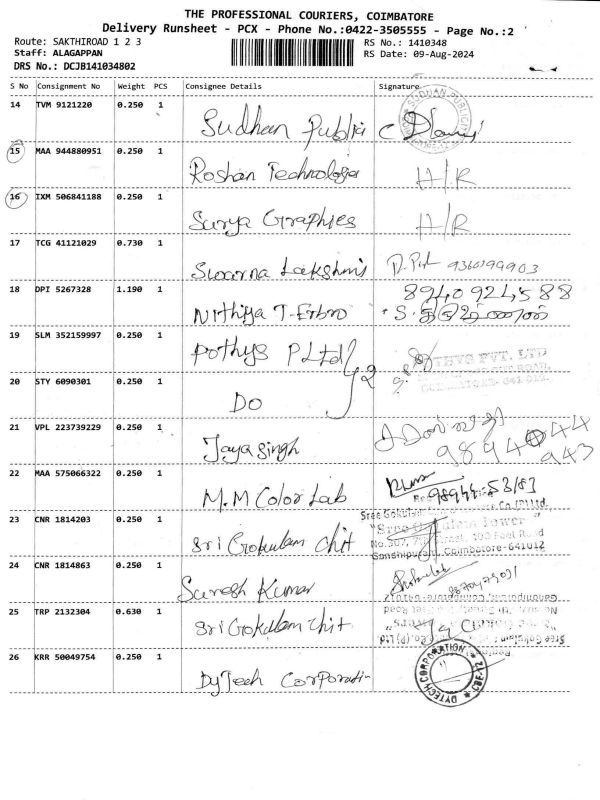 THE PROFESSIONAL COURIERS, COIMBATORE
Delivery Runsheet - PCX - Phone No.:0422-3505555 - Page No.:2
Route: SAKTHIROAD 1 2 3 RS No.: 1410348
Staff: ALAGAPPAN RS Date: 09-Aug-2024
DRS No.: DCJB141034802
S No Consignment No Weight PCS Consignee Details Signature
14 TVM 9121220 0.250 1 Sudhan Public
15 MAA 944880951 0.250 1 Roshan Technologie H/R
16 IXM 506841188 0.250 1 Surya Graphics H/R
17 TCG 41121029 0.730 1 Swarna Lakshmi 9360199903
18 DPI 5267328 1.190 1 Nithiya T-Erbro 8940924588
19 SLM 352159997 0.250 1 Pothys P Ltd 2 POTHYS PVT. LTD
20 STY 6090301 0.250 1 DO
21 VPL 223739229 0.250 1 Jayasingh
22 MAA 575066322 0.250 1 M.M Color Lab
23 CNR 1814203 0.250 1 Sri Gokulam Chit
"Sree Gokulam Tower"
100 Feet Road
Gandhipuram, Coimbatore-641012
24 CNR 1814863 0.250 1 Suresh Kumar
25 TRP 2132304 0.630 1 Sri Gokulam Chit
26 KRR 50049754 0.250 1 DyTech Corporati- DYTECH CORPORATION